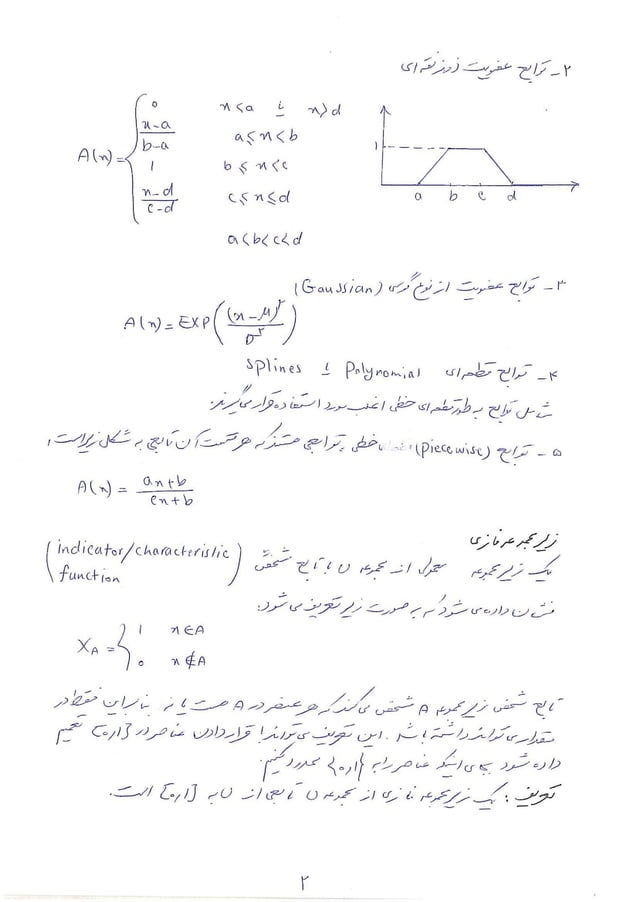 ۲- توابع عضویت ذوزنقه‌ای
A(x) = { 0 x<a یا x>d
x-a / b-a a≤x<b
1 b≤x<c
x-d / c-d c≤x≤d
a<b<c<d
1
a b c d
۳- توابع عضویت از نوع گوسی (Gaussian)
A(x) = EXP((x-μ)² / σ²)
۴- توابع قطعه‌ای Polynomial یا splines
شامل توابع به طور قطعه‌ای خطی اغلب مورد استفاده قرار می‌گیرند.
۵- توابع (piecewise) خطی، توابعی هستند که هر قسمت آن تابعی به شکل زیر است:
A(x) = ax+b / cx+b
زیر مجموعه فازی
یک زیرمجموعه معمول از مجموعه U با تابع مشخص (indicator/characteristic function)
نشان داده می‌شود که به صورت زیر تعریف می‌شود:
X_A = { 1 x∈A
0 x∉A
تابع مشخص زیرمجموعه A مشخص می‌کند که هر عنصر در A هست یا نه. بنابراین فقط دو
مقدار می‌تواند داشته باشد. این تعریف می‌تواند با قرار دادن عناصر در [۰,۱] تعمیم
داده شود بجای اینکه عناصر را به {۰,۱} محدود کنیم.
تعریف: یک زیرمجموعه فازی از مجموعه U تابعی از U به [۰,۱] است.
۲